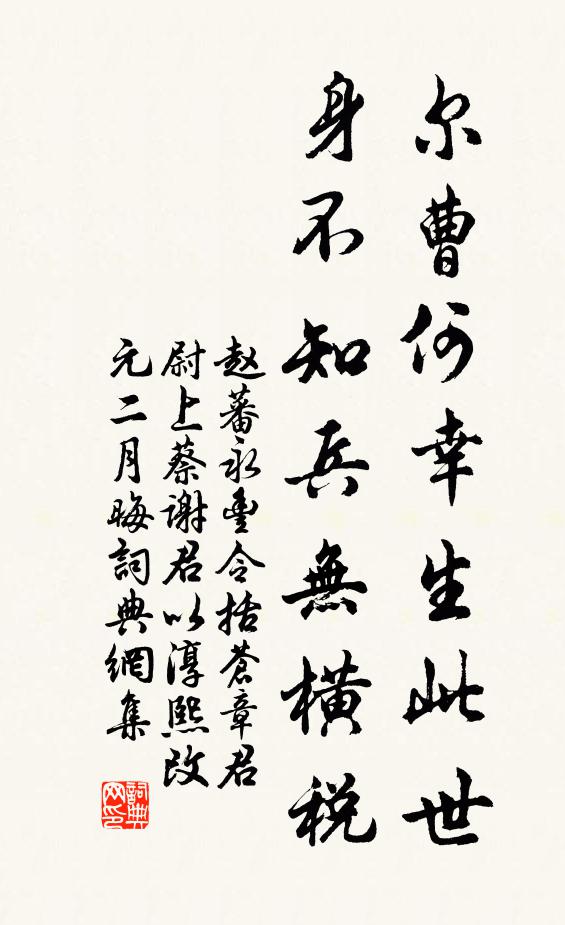 尔曹何幸生此世
身不知兵無橫税
赵蕃永豐令括蒼章君
尉上蔡謝君以淳熙改
元二月晦詞典網集
詞典网印